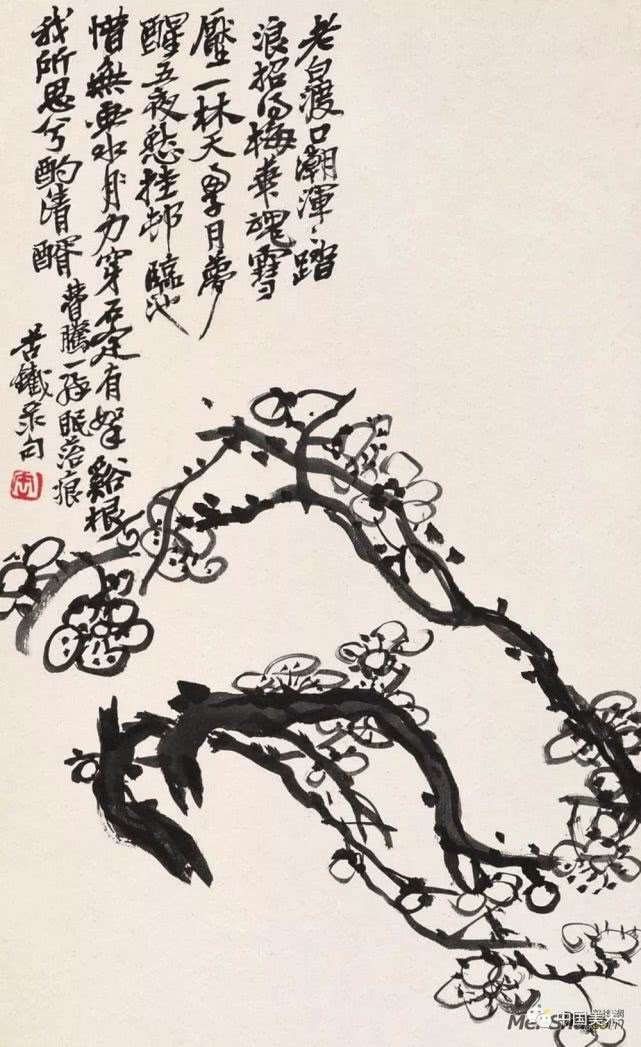 老白渡口潮渾渾踏
浪招得梅華魂雪
壓一林天
月夢
醒五夜愁挂邨臨池
惜無
水月力穿石定有
谿根
我所思兮酌清醑瞢騰一
眠落痕
苦鐵
句
中国美术